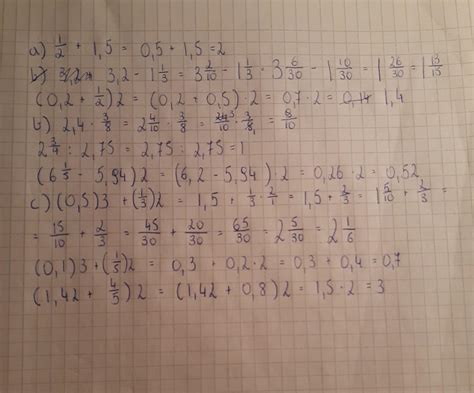 a) 1/2 + 1,5 = 0,5 + 1,5 = 2
3,2 - 1 1/3 = 3 2/10 - 1 1/3 = 3 6/30 - 1 10/30 = 1 26/30 = 1 13/15
(0,2 + 1/2)2 = (0,2 + 0,5) · 2 = 0,7 · 2 = 0,14 1,4
b) 2,4 · 3/8 = 2 4/10 · 3/8 = 24/10 · 3/8 = 9/10
2 3/4 : 2,75 = 2,75 : 2,75 = 1
(6 1/5 - 5,94)2 = (6,2 - 5,94) · 2 = 0,26 · 2 = 0,52
c) (0,5)3 + (1/3)2 = 1,5 + 1/3 · 2/1 = 1,5 + 2/3 = 1 5/10 + 2/3 =
= 15/10 + 2/3 = 45/30 + 20/30 = 65/30 = 2 5/30 = 2 1/6
(0,1)3 + (1/5)2 = 0,3 + 0,2 · 2 = 0,3 + 0,4 = 0,7
(1,42 + 4/5)2 = (1,42 + 0,8)2 = 1,5 · 2 = 3